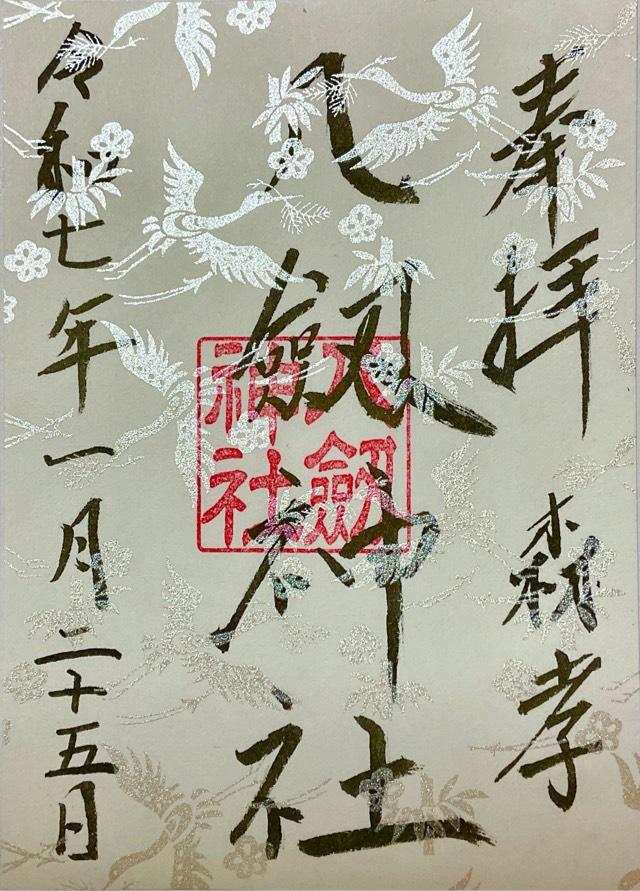 奉拝
森孝
八剱神社
八劔
神社
令和七年一月二十五日